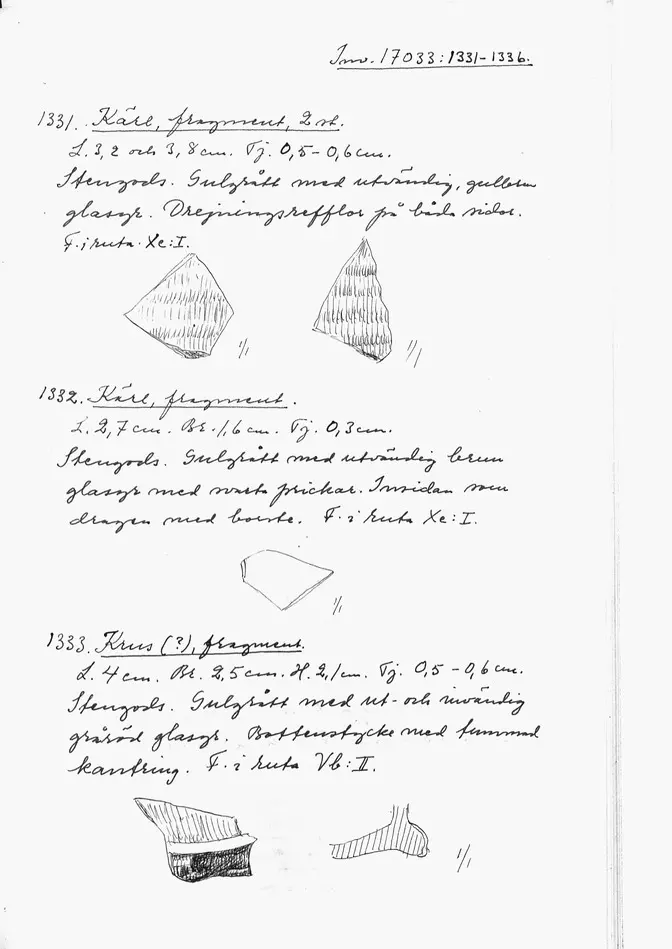 Inv. 17033:1331-1336.
1331. Kärl, fragment, 2 st.
L. 3,2 och 3,8 cm. Tj. 0,5-0,6 cm.
Stengods. Gulgrått med utvändig, gulbrun
glasyr. Drejningsrefflor på båda sidor.
F. i ruta Xc:I.
1/1
1/1
1332. Kärl, fragment.
L. 2,7 cm. Br. 1,6 cm. Tj. 0,3 cm.
Stengods. Gulgrått med utvändig brun
glasyr med svarta prickar. Insidan som
dragen med borste. F. i ruta Xc:I.
1/1
1333. Krus (?), fragment.
L. 4 cm. Br. 2,5 cm. H. 2,1 cm. Tj. 0,5-0,6 cm.
Stengods. Gulgrått med ut- och invändig
gråröd glasyr. Bottenstycke med tummad
kantring. F. i ruta Vb:II.
1/1